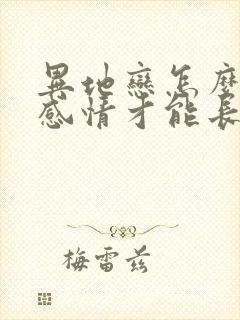 異地戀怎麼
感情才能長
梅雷茲